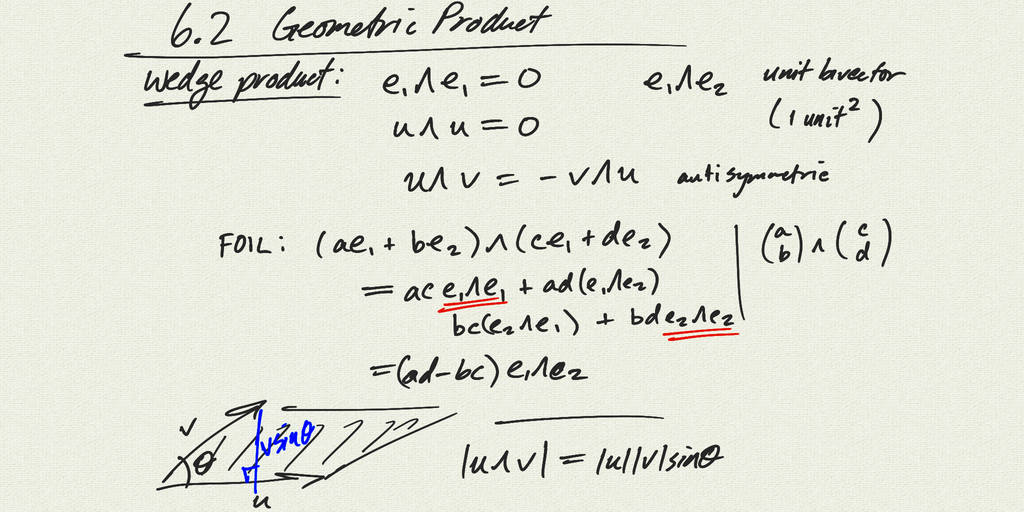 6.2 Geometric Product
wedge product: e₁∧e₁ = 0 e₁∧e₂ unit bivector
u∧u = 0 (1 unit²)
u∧v = -v∧u antisymmetric
FOIL: (ae₁ + be₂)∧(ce₁ + de₂) | (a b)∧(c d)
= ac e₁∧e₁ + ad(e₁∧e₂)
bc(e₂∧e₁) + bd e₂∧e₂
= (ad-bc) e₁∧e₂
v
θ
vsinθ
u
|u∧v| = |u||v|sinθ